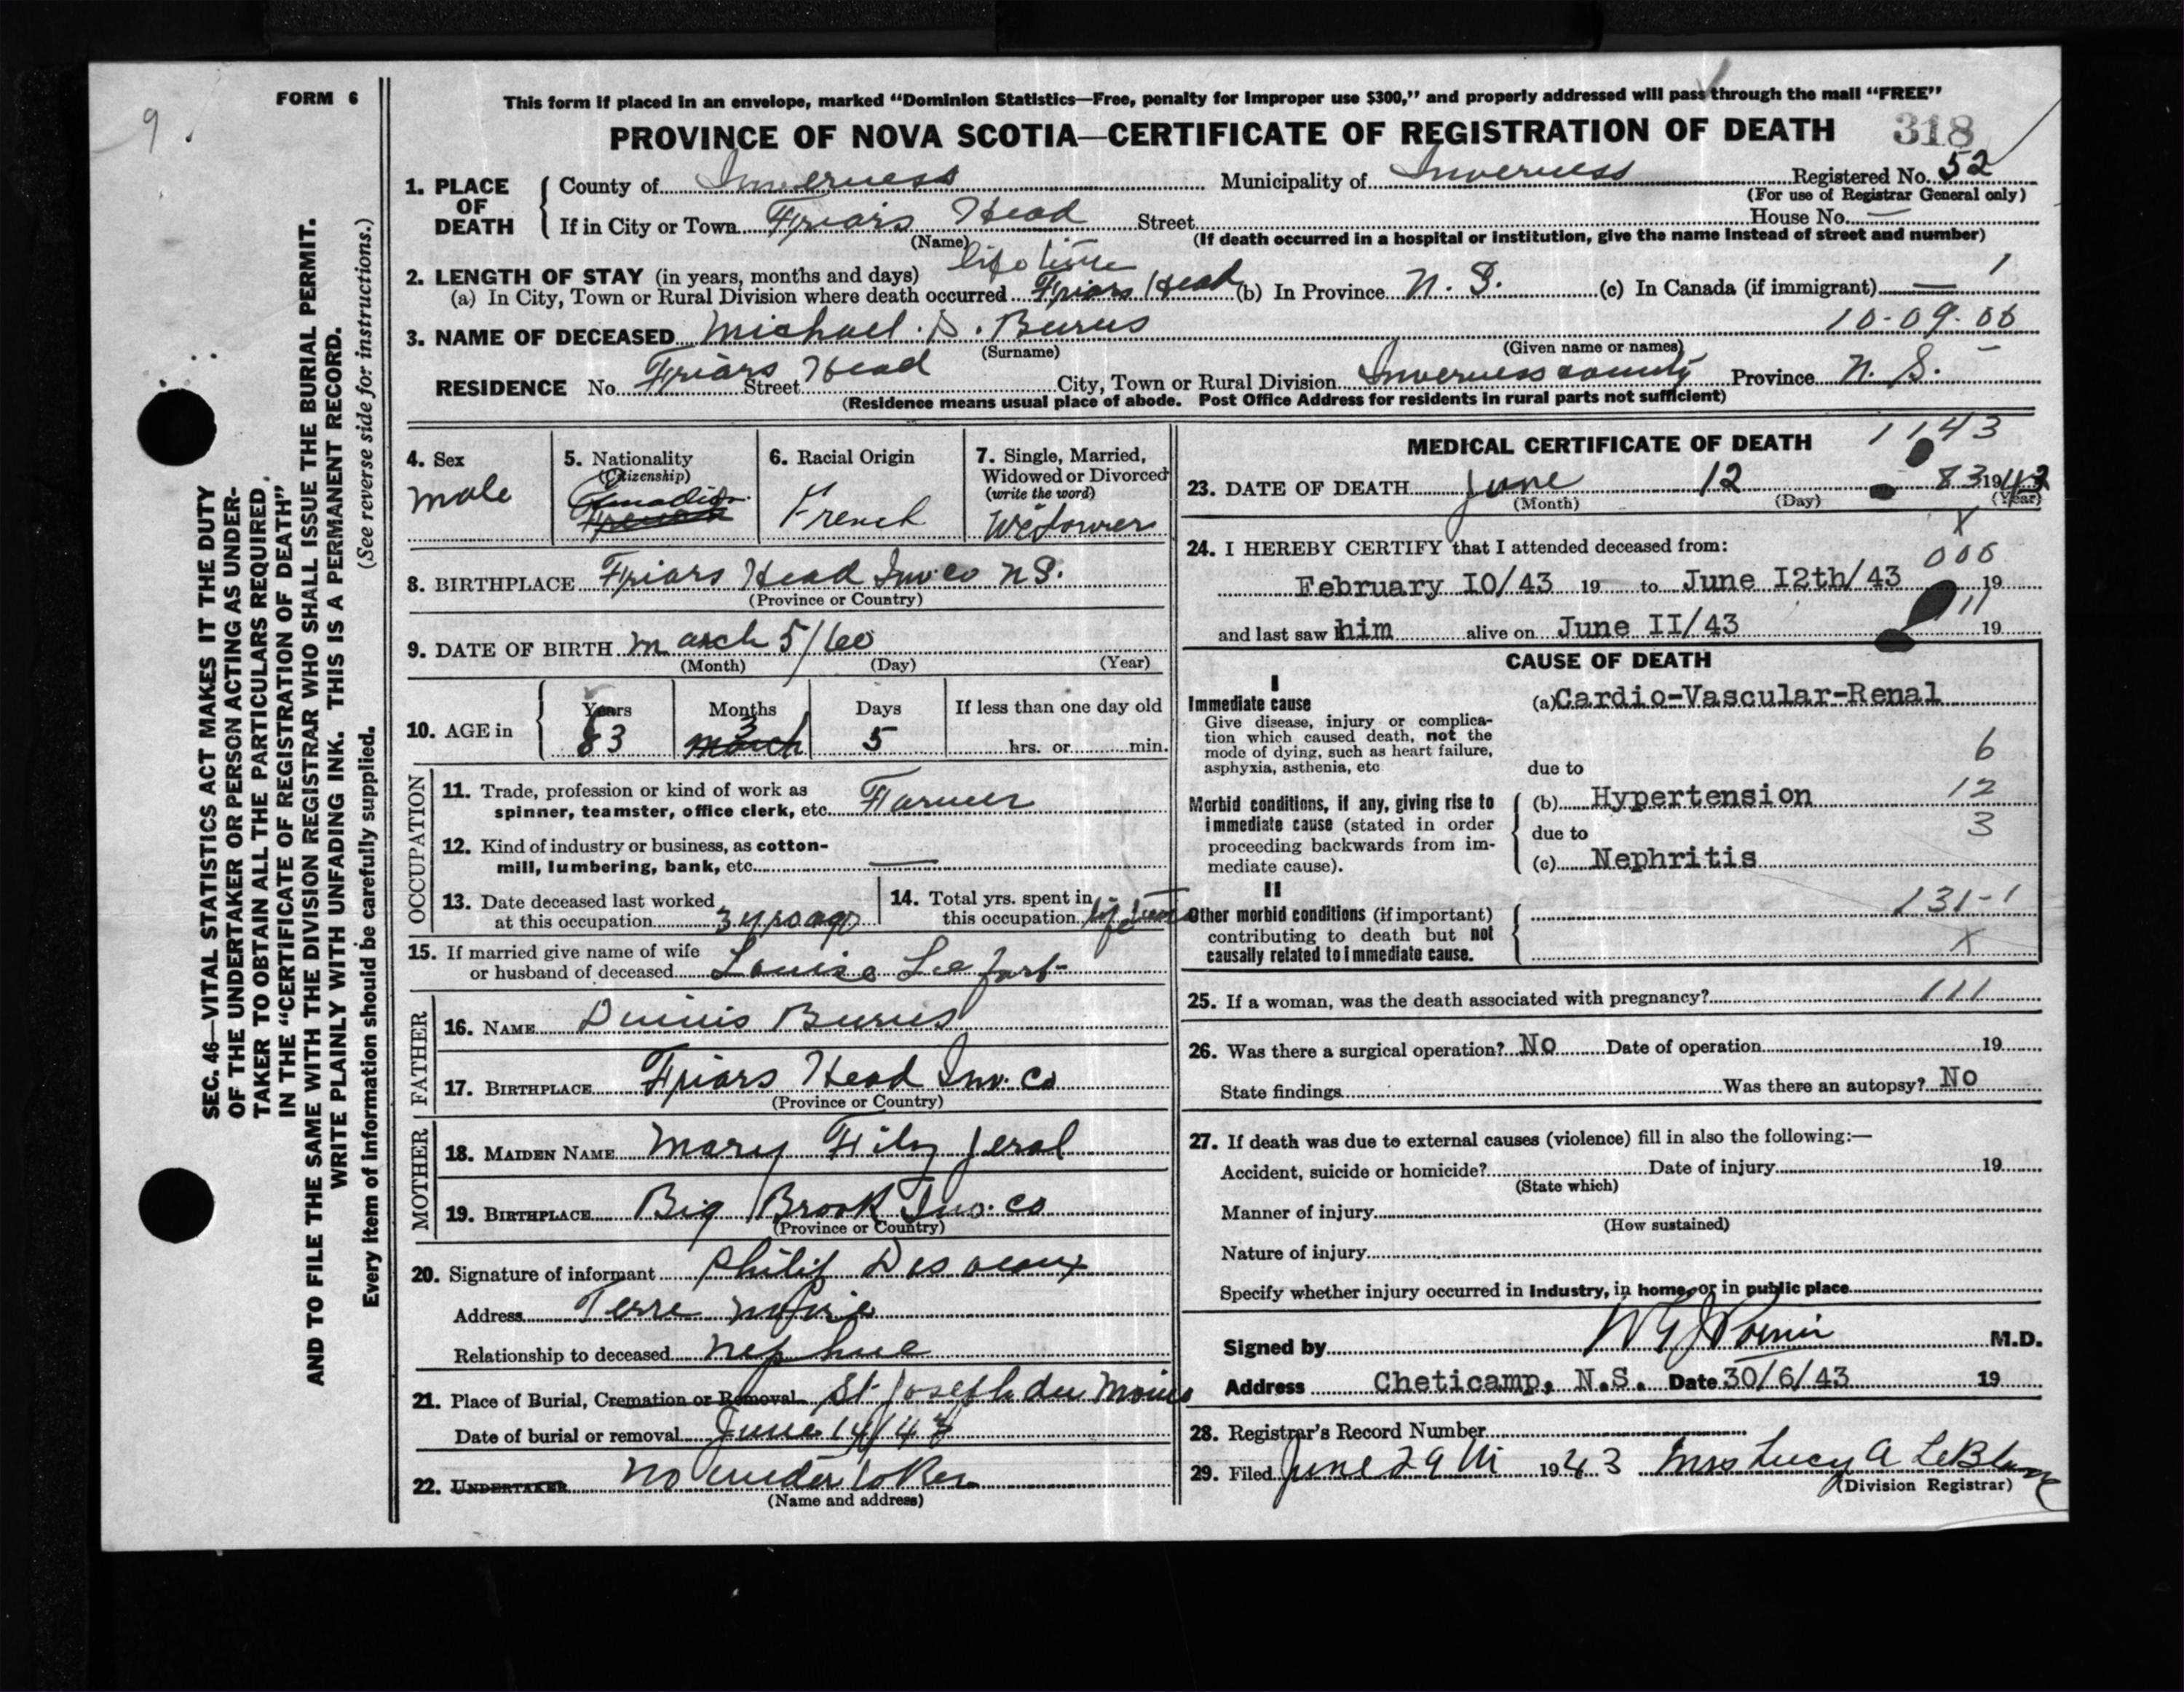 FORM 6
9
This form if placed in an envelope, marked "Dominion Statistics—Free, penalty for improper use $300," and properly addressed will pass through the mail "FREE"
PROVINCE OF NOVA SCOTIA—CERTIFICATE OF REGISTRATION OF DEATH 318
1. PLACE OF DEATH { County of Inverness Municipality of Inverness Registered No. 52
(For use of Registrar General only)
If in City or Town Friars Head Street House No. —
(Name) (If death occurred in a hospital or institution, give the name instead of street and number)
2. LENGTH OF STAY (in years, months and days) life time
(a) In City, Town or Rural Division where death occurred Friars Head (b) In Province N. S. (c) In Canada (if immigrant) — 1
3. NAME OF DECEASED Michael. D. Burns 10-09-06
(Surname) (Given name or names)
RESIDENCE No. Friars Head Street City, Town or Rural Division Inverness county Province N. S.
(Residence means usual place of abode. Post Office Address for residents in rural parts not sufficient)
4. Sex
male
5. Nationality
(Citizenship)
Canadian
French
6. Racial Origin
French
7. Single, Married,
Widowed or Divorced
(write the word)
Widower
8. BIRTHPLACE Friars Head Inv. co N S.
(Province or Country)
9. DATE OF BIRTH march 5/60
(Month) (Day) (Year)
10. AGE in { Years Months Days If less than one day old
83 march 3 5 hrs. or min.
OCCUPATION
11. Trade, profession or kind of work as
spinner, teamster, office clerk, etc. Farmer
12. Kind of industry or business, as cotton-
mill, lumbering, bank, etc. —
13. Date deceased last worked
at this occupation 3 yrs ago
14. Total yrs. spent in
this occupation life time
15. If married give name of wife
or husband of deceased Louise Lee fort
FATHER
16. NAME Dinnis Burns
17. BIRTHPLACE Friars Head Inv. Co
(Province or Country)
MOTHER
18. MAIDEN NAME Mary Fitz jeral
19. BIRTHPLACE Big Brook Inv. co
(Province or Country)
20. Signature of informant Philip Desveaux
Address Terre noire
Relationship to deceased nephue
21. Place of Burial, Cremation or Removal St Joseph du Moine
Date of burial or removal June 14/43
22. UNDERTAKER no undertoker
(Name and address)
MEDICAL CERTIFICATE OF DEATH 1143
23. DATE OF DEATH June 12 83 1943
(Month) (Day) (Year)
X
24. I HEREBY CERTIFY that I attended deceased from:
000
February 10/43 19 to June I2th/43 19
11
and last saw him alive on June II/43 19
CAUSE OF DEATH
I
Immediate cause
Give disease, injury or complica-
tion which caused death, not the
mode of dying, such as heart failure,
asphyxia, asthenia, etc
(a) Cardio-Vascular-Renal
6
due to
Morbid conditions, if any, giving rise to
immediate cause (stated in order
proceeding backwards from im-
mediate cause).
(b) Hypertension 12
due to 3
(c) Nephritis
II
Other morbid conditions (if important)
contributing to death but not
causally related to immediate cause.
131-1
X
25. If a woman, was the death associated with pregnancy? 111
26. Was there a surgical operation? No Date of operation 19
State findings Was there an autopsy? No
27. If death was due to external causes (violence) fill in also the following:—
Accident, suicide or homicide? Date of injury 19
(State which)
Manner of injury
(How sustained)
Nature of injury
Specify whether injury occurred in industry, in home, or in public place
Signed by M.D.
Address Cheticamp, N.S. Date 30/6/43 19
28. Registrar's Record Number
29. Filed June 29th 1943 Mrs Lucy A LeBlanc
(Division Registrar)
SEC. 46—VITAL STATISTICS ACT MAKES IT THE DUTY
OF THE UNDERTAKER OR PERSON ACTING AS UNDER-
TAKER TO OBTAIN ALL THE PARTICULARS REQUIRED
IN THE "CERTIFICATE OF REGISTRATION OF DEATH"
AND TO FILE THE SAME WITH THE DIVISION REGISTRAR WHO SHALL ISSUE THE BURIAL PERMIT.
WRITE PLAINLY WITH UNFADING INK. THIS IS A PERMANENT RECORD.
Every item of information should be carefully supplied. (See reverse side for instructions.)